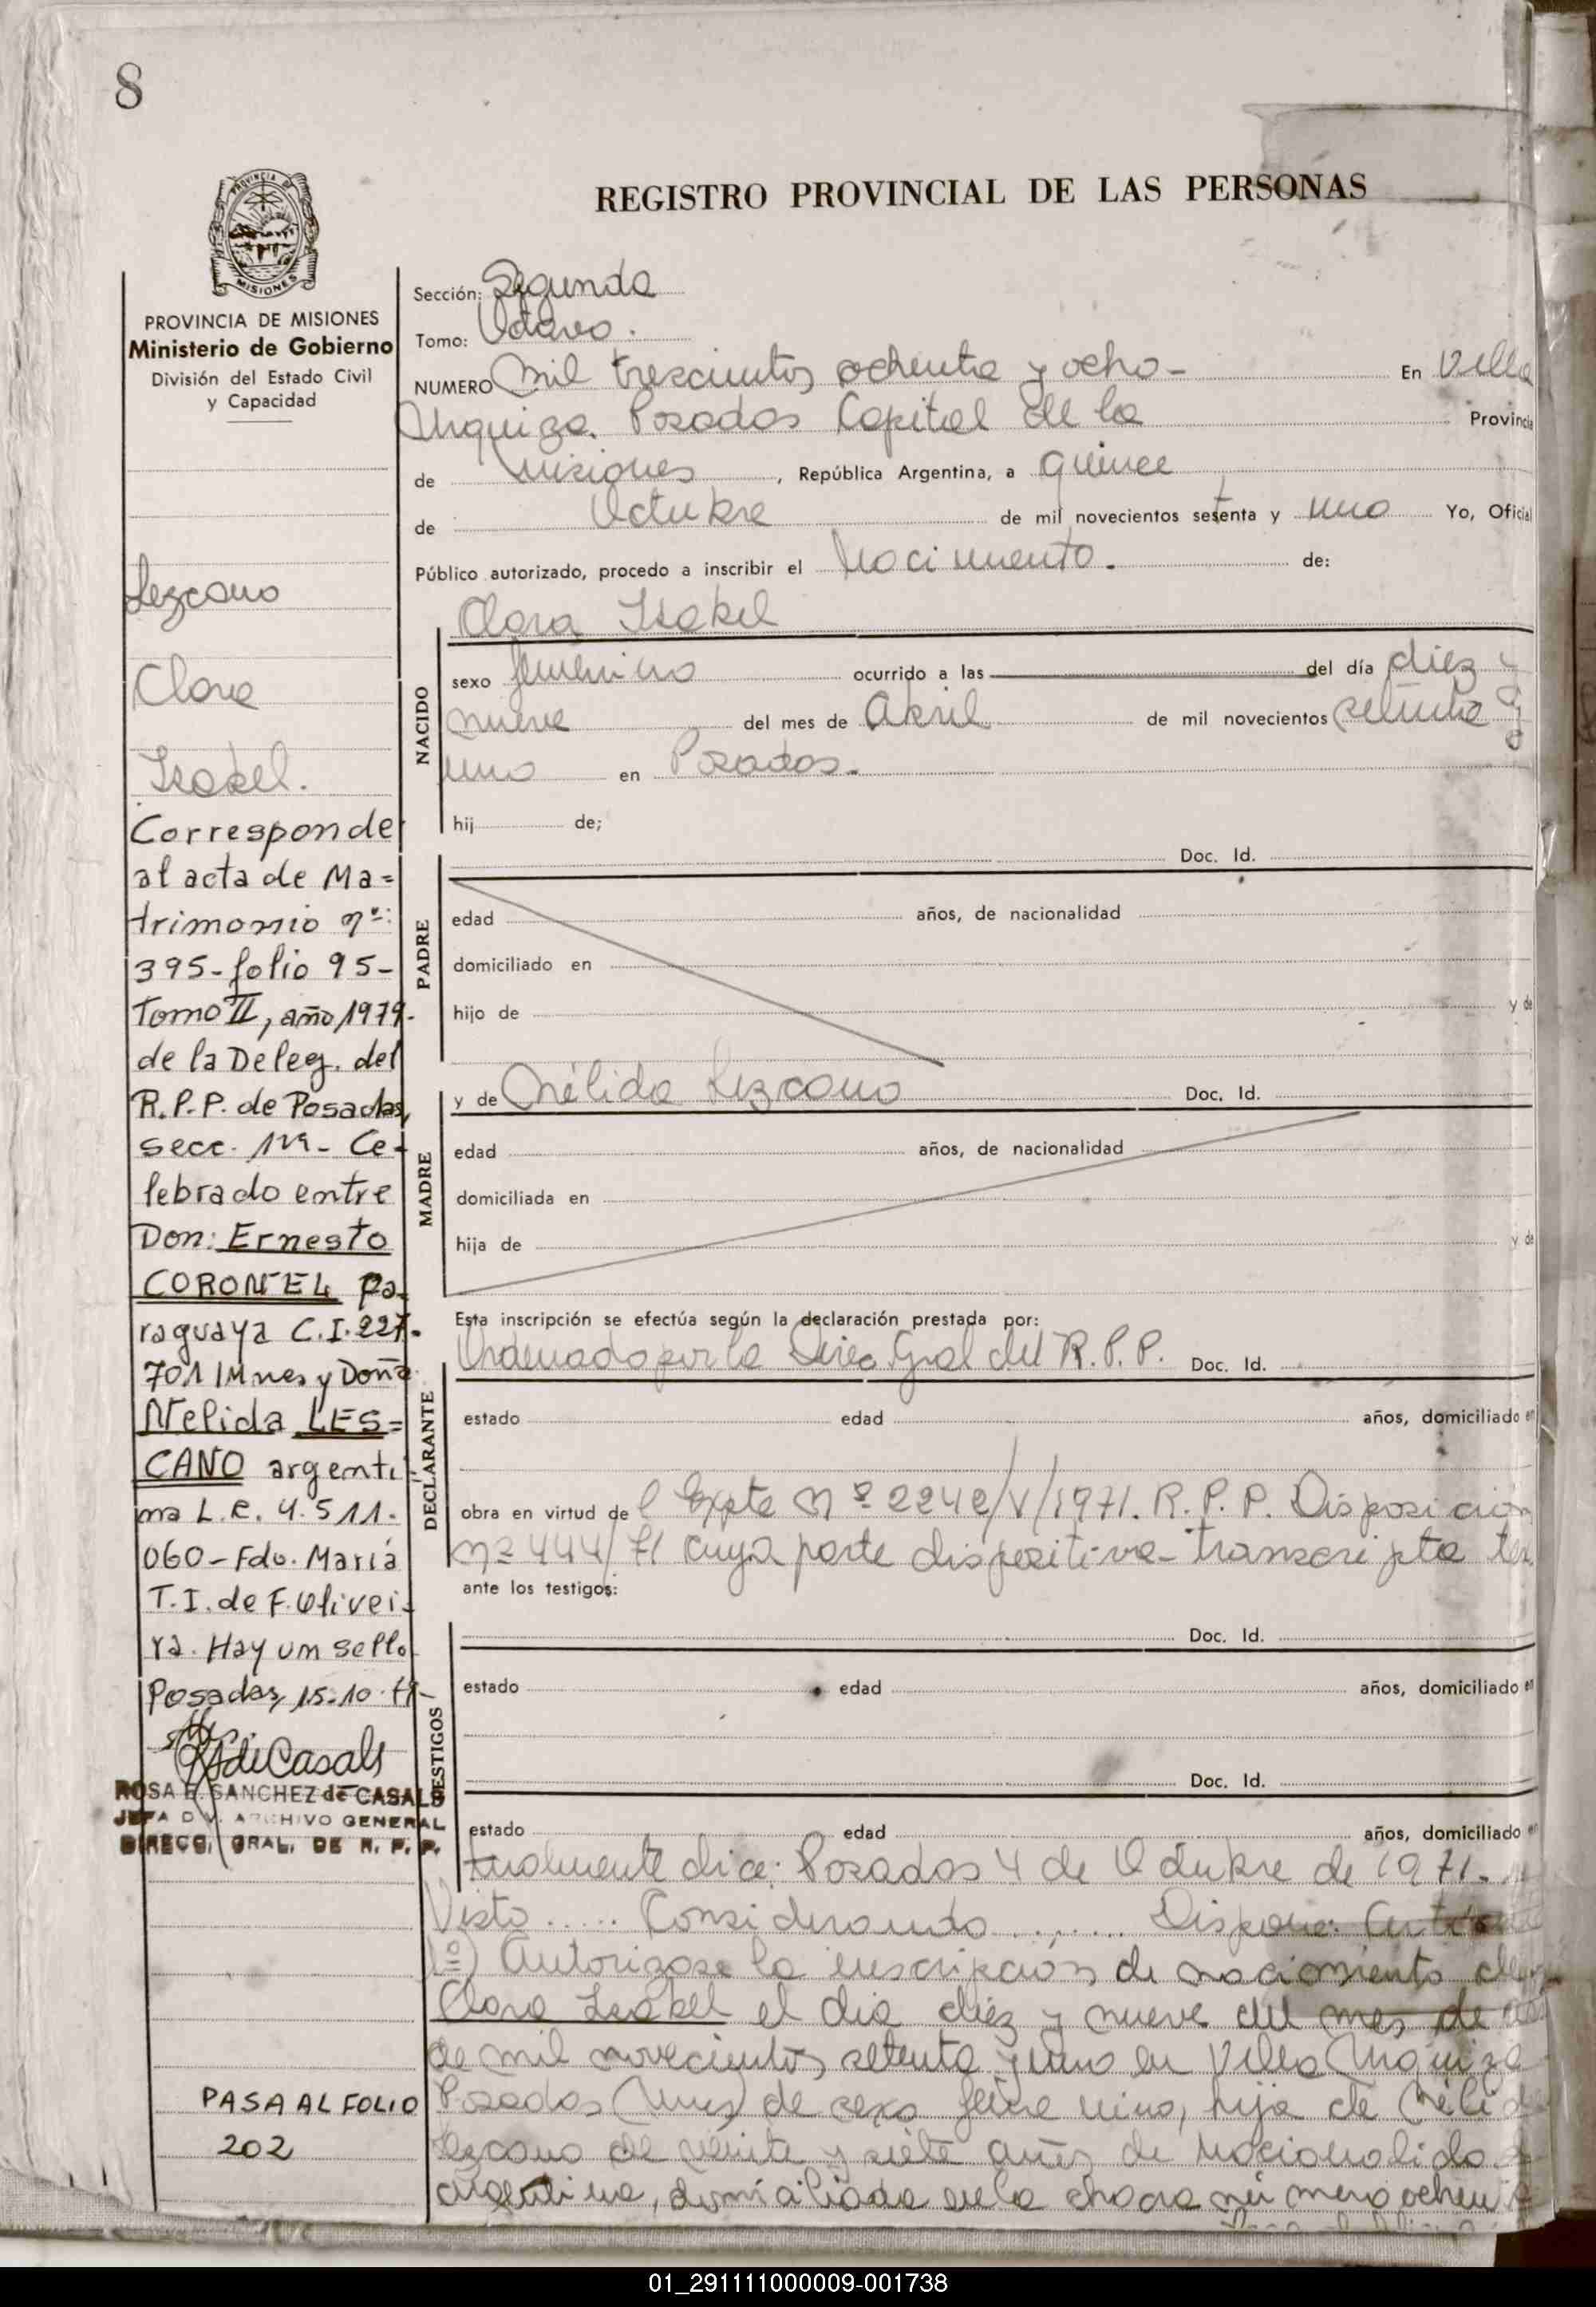 8
REGISTRO PROVINCIAL DE LAS PERSONAS
PROVINCIA DE MISIONES
MISIONES
PROVINCIA DE MISIONES
Ministerio de Gobierno
División del Estado Civil
y Capacidad
Lezcano
Clara
Isabel.
Corresponde
al acta de Ma=
trimonio nº:
395-folio 95-
Tomo II, año 1979-
de la Deleg. del
R.P.P. de Posadas,
secc. 1ra- Ce-
lebrado entre
Don: Ernesto
CORONEL pa-
raguaya C.I. 227.
701 Mnes y Doña
Nelida LES=
CANO argenti
na L.C. 4.511.
060-Fdo. María
T.I. de F. Olivei-
ra. Hay un sello
Posadas, 15-10-
ROSA E. SANCHEZ de CASALS
JEFA DIV. ARCHIVO GENERAL
DIRECC. GRAL. DE R. P. P.
PASA AL FOLIO
202
Sección: Segunda
Tomo: Octavo.
NUMERO Mil trescientos ochenta y ocho- En Villa
Urquiza. Posadas Capital de la Provincia
de Misiones, República Argentina, a quince
de Octubre de mil novecientos setenta y uno Yo, Oficial
Público autorizado, procedo a inscribir el Nacimiento. de:
Clara Isabel
NACIDO
sexo femenino ocurrido a las del día diez y
nueve del mes de Abril de mil novecientos setenta y
uno en Posadas.
hij de;
PADRE
Doc. Id.
edad años, de nacionalidad
domiciliado en
hijo de y de
MADRE
y de Nélida Lezcano Doc. Id.
edad años, de nacionalidad
domiciliada en
hija de y de
Esta inscripción se efectúa según la declaración prestada por:
DECLARANTE
Ordenado por la Direc. Gral del R.P.P. Doc. Id.
estado edad años, domiciliado en
obra en virtud de l Expte Nº 2242/V/1971. R.P.P. Disposición
nº 444/71 cuya parte dispositiva transcripta tex
ante los testigos:
TESTIGOS
Doc. Id.
estado edad años, domiciliado en
Doc. Id.
estado edad años, domiciliado en
tualmente dice: Posadas 4 de Octubre de 1971.
Visto ..... Considerando ....... Dispone:
1º) Autorizase la inscripción de nacimiento de
Clara Isabel el dia diez y nueve del mes de
de mil novecientos setenta y uno en Villa Urquiza
Posadas (Mnes) de sexo femenino, hija de Nélida
Lezcano de veinte y siete años de nacionalidad
argentina, domiciliada en la chacra número ochenta
01_291111000009-001738